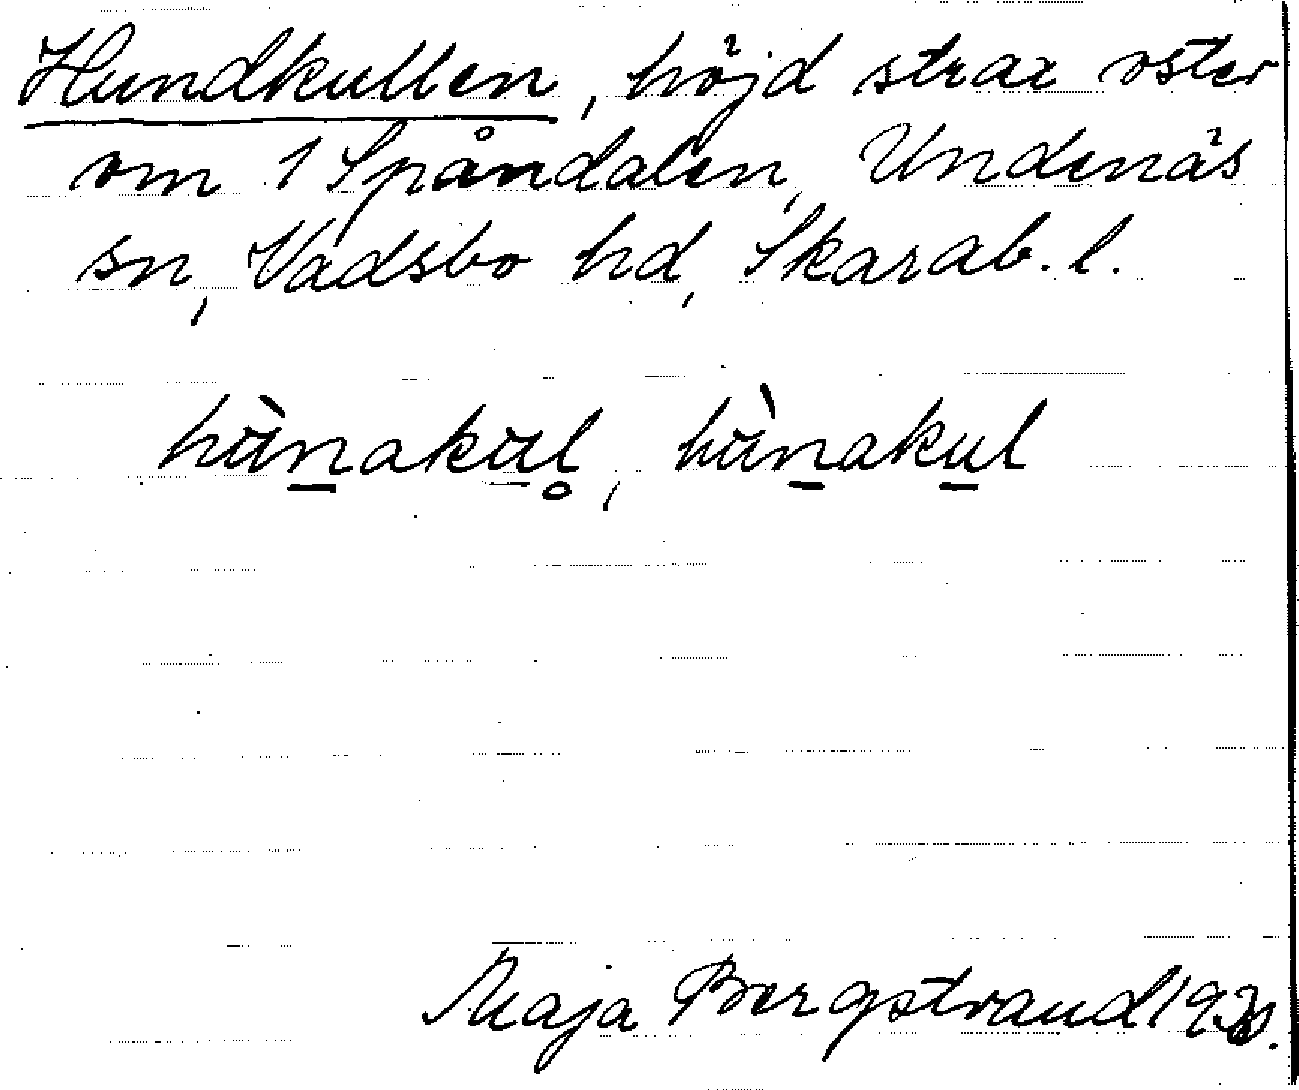 Hundkullen, höjd strax öster
om 1 Spåndalen, Undenäs
sn, Vadsbo hd, Skarab. l.
hùnakul, hùnakul
Maja Bergstrand